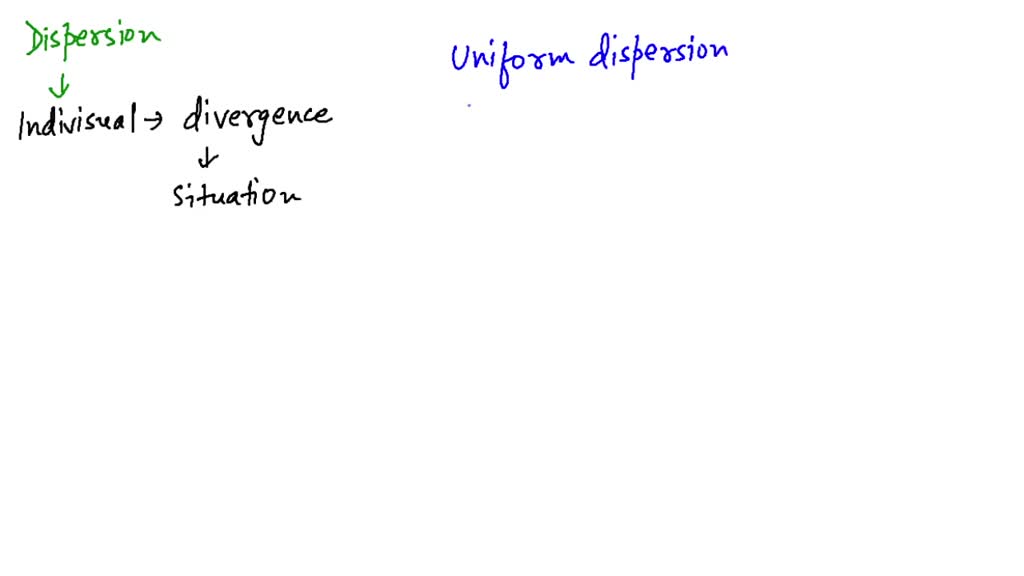 Dispersion
↓
Indivisual → divergence
↓
Situation
Uniform dispersion